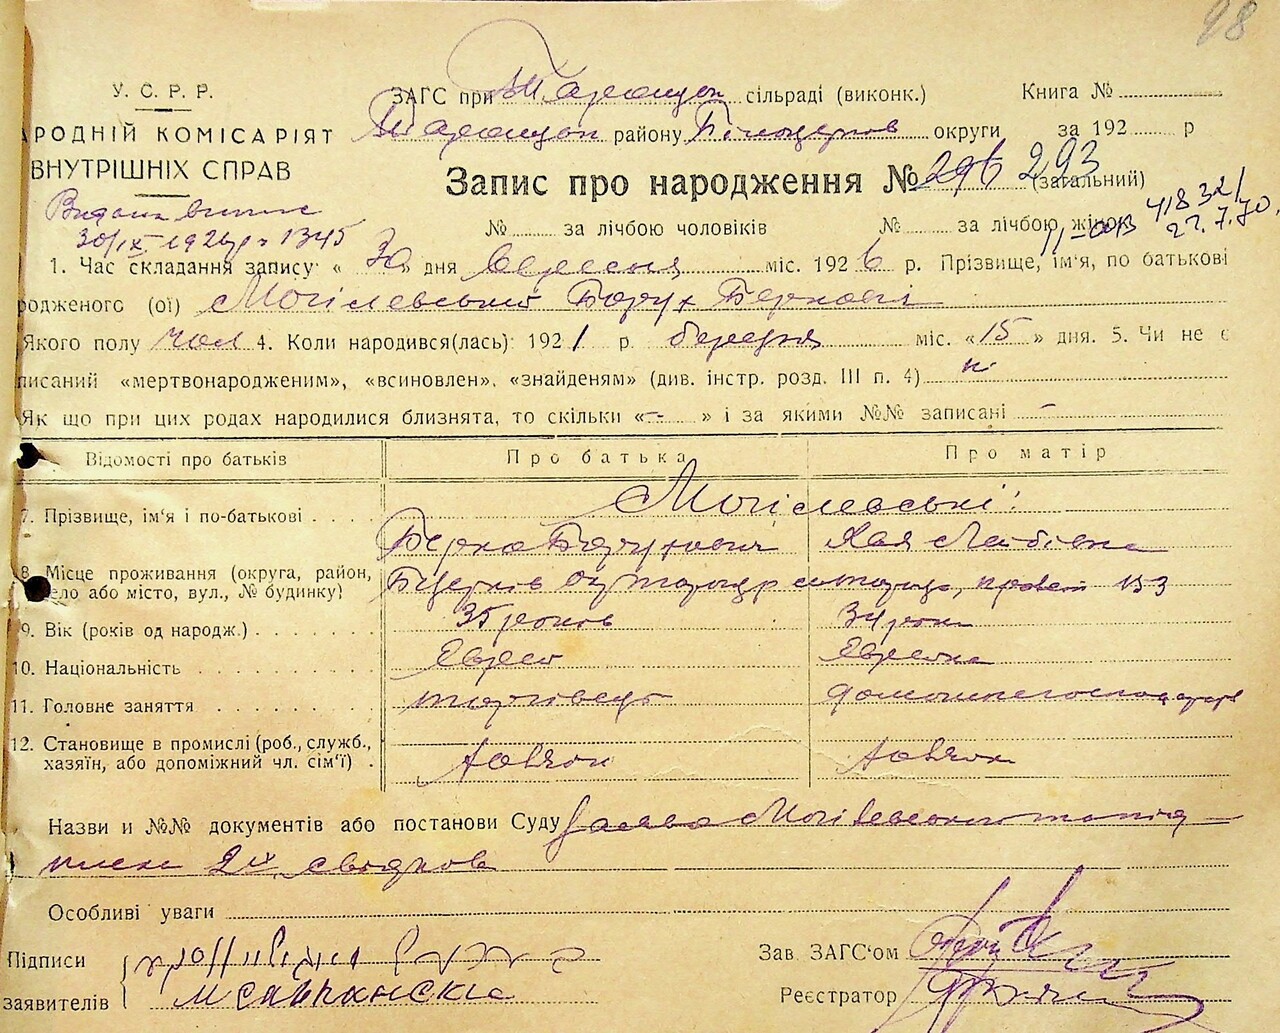 98
У. С. Р. Р.
АРОДНІЙ КОМІСАРІЯТ
ВНУТРІШНІХ СПРАВ
ЗАГС при Таращан. сільраді (виконк.)
Книга №
Таращан району Білоцерков округи за 192 р
Запис про народження № 296 293 (загальний)
30/IX 1926 р 1345
№ за лічбою чоловіків № за лічбою жінок
41832/
22.7.70.
1. Час складання запису: « 30 » дня Вересня міс. 1926 р. Прізвище, ім'я, по батькові
родженого (ої) Могілевський Борух Беркович
Якого полу чол 4. Коли народився(лась): 1921 р. березня міс. «15» дня. 5. Чи не є
писаний «мертвонародженим», «всиновлен», «знайденям» (див. інстр. розд. III п. 4) н
Як що при цих родах народилися близнята, то скільки « – » і за якими №№ записані –
Відомості про батьків Про батька Про матір
7. Прізвище, ім'я і по-батькові Могілевські:
Берко Борухович Хая Лейбівна
8. Місце проживання (округа, район,
ело або місто, вул., № будинку)
153
9. Вік (років од народж.) 35 років 34 роки
10. Національність Еврей Еврейка
11. Головне заняття торговець
12. Становище в промислі (роб., служб.,
хазяїн, або допоміжний чл. сім'ї)
Назви и №№ документів або постанови Суду Заява Могілевського та під
писи 2х свідков
Особливі уваги
Підписи
заявителів
Зав. ЗАГС'ом
Реєстратор